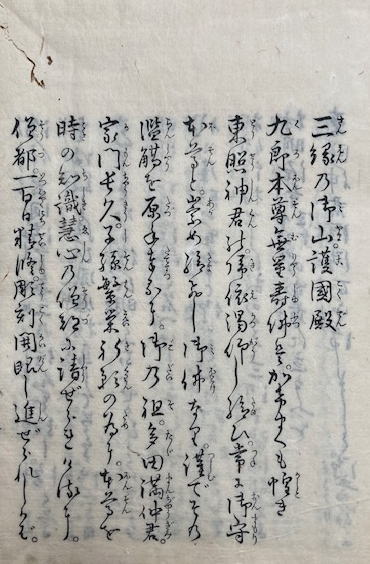 三縁乃御山護國殿
九郎本尊無量壽佛ハ。かけまくも惶き
東照神君の帰依渇仰し給ひ。常に御守
本尊と。崇め給ひし御佛なり。謹でその
濫觴を原ね奉るに。御乃祖。多田滿仲君。
家門長久。子孫繁榮祈願の為に。本尊を
時の知識慧心乃僧都に請ぜられけるに。
僧都。一百日精修。彫刻開眼し進ぜられしかば。